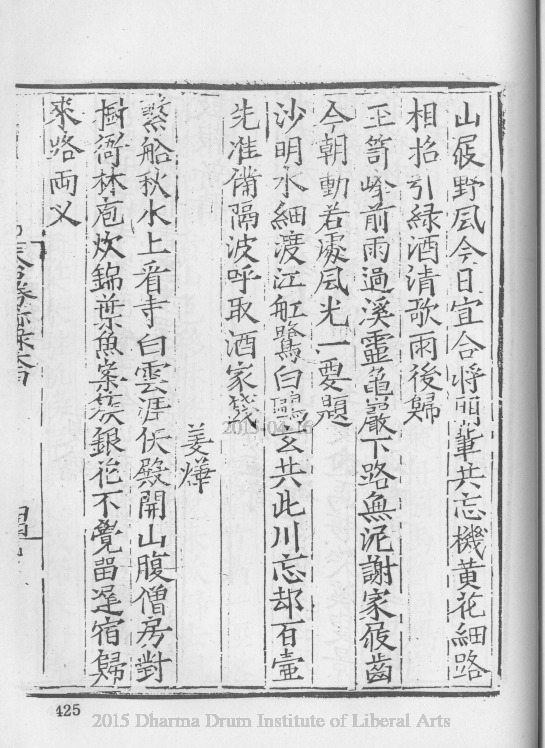 山屐野風今日宜合將丽軰共忘機黄花細路
相招引緑酒清歌雨後歸
玉笥峰前雨過溪靈龜巖下路無泥謝家屐齒
今朝動若處風光一要題
沙明水細渡江舡鷺白鷗玄共此川忘却百壷
先准俻隔波呼取酒家錢
姜燁
繫船秋水上看寺白雲涯伏殿開山腹僧房對
樹衙林庖炊錦葉魚案簇銀花不覺畱遲宿歸
來路両义
425
2015 Dharma Drum Institute of Liberal Arts